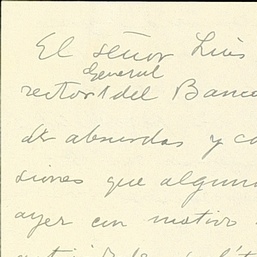 El señor Luis
General
rector del Banco
de absurdas y co
siones que alguno
ayer con motivo